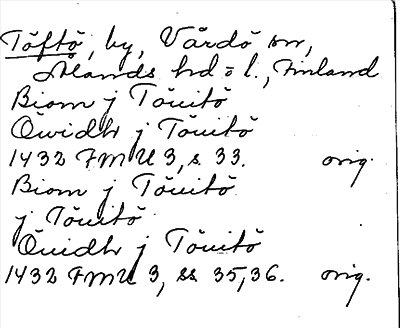 Töftö, by, Vårdö sn,
Ålands hd o l., Finland
Biorn j Töuitö
Öwidhr j Töuitö
1432 FMU 3, s 33. orig.
Biorn j Töuitö
j Töuitö
Öuidhr j Töuitö
1432 FMU 3, ss 35,36. orig.